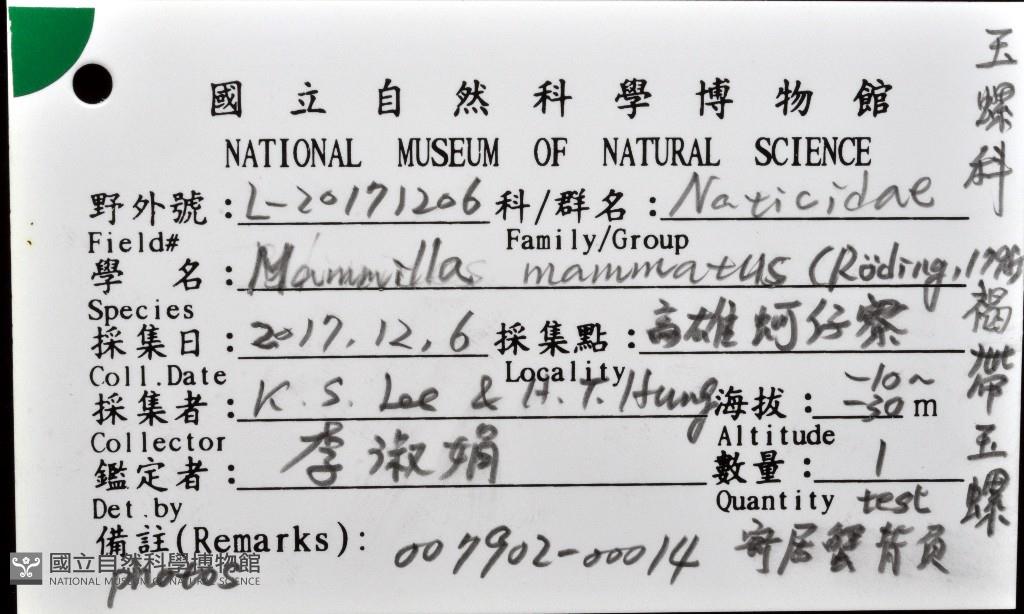 國立自然科學博物館
NATIONAL MUSEUM OF NATURAL SCIENCE
野外號：L-20171206 科/群名：Naticidae
Field# Family/Group
學 名：Mammillas mammatus (Röding, 1798)
Species
採集日：2017.12.6 採集點：高雄蚵仔寮
Coll.Date Locality
採集者：K. S. Lee & H. T. Hung 海拔：-10~-30 m
Collector Altitude
鑑定者：李淑娟 數量：1
Det.by Quantity test
備註(Remarks)：007902-00014 寄居蟹背負
photos
玉螺科
褐帶玉螺
國立自然科學博物館
NATIONAL MUSEUM OF NATURAL SCIENCE